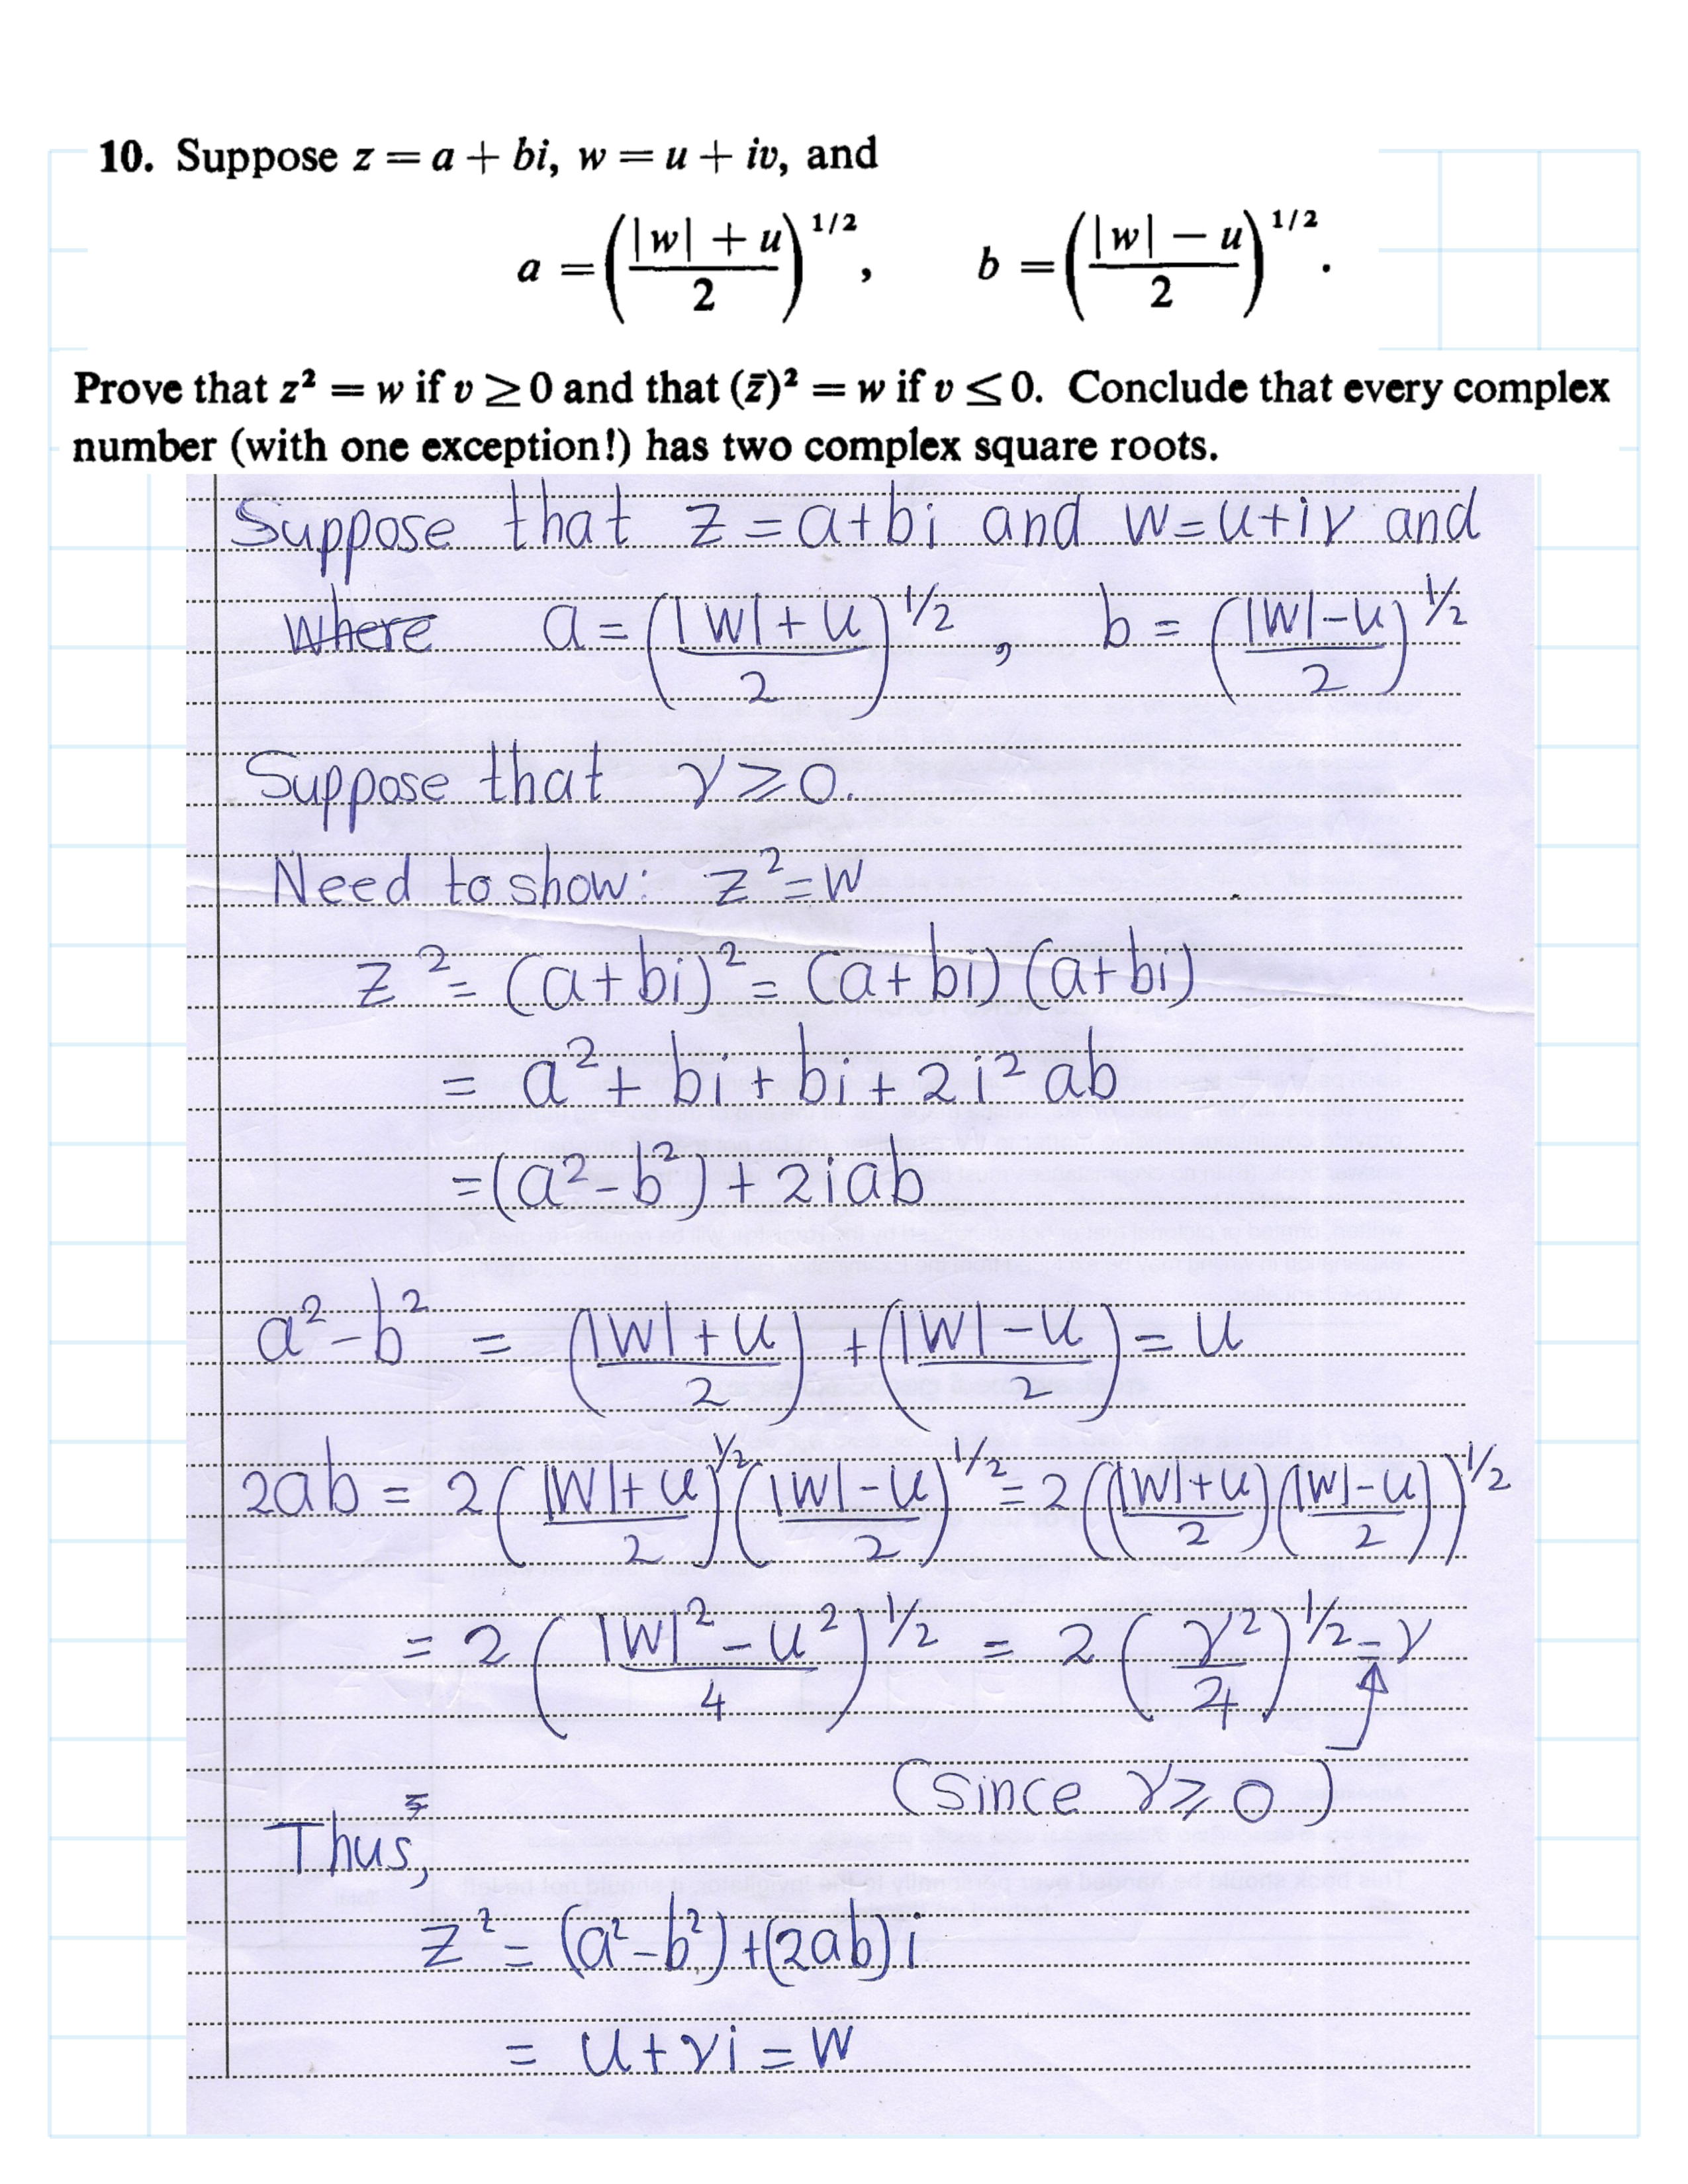 10. Suppose z = a + bi, w = u + iv, and
a = ((|w| + u)/2)^{1/2}, b = ((|w| − u)/2)^{1/2}.
Prove that z² = w if v ≥ 0 and that (z̄)² = w if v ≤ 0. Conclude that every complex
number (with one exception!) has two complex square roots.
Suppose that z = a+bi and w=u+iv and
where a = ((|w|+u)/2)^{1/2}, b = ((|w|-u)/2)^{1/2}
Suppose that v ≥ 0.
Need to show: z² = w
z² = (a+bi)² = (a+bi)(a+bi)
= a² + bi + bi + 2i²ab
= (a²-b²) + 2iab
a²-b² = ((|w|+u)/2) + ((|w|-u)/2) = u
2ab = 2((|w|+u)/2)^{1/2}((|w|-u)/2)^{1/2} = 2(((|w|+u)/2)((|w|-u)/2))^{1/2}
= 2((|w|²-u²)/4)^{1/2} = 2(v²/4)^{1/2} = v
(since v ≥ 0)
Thus,
z² = (a²-b²)+(2ab)i
= u+vi = w